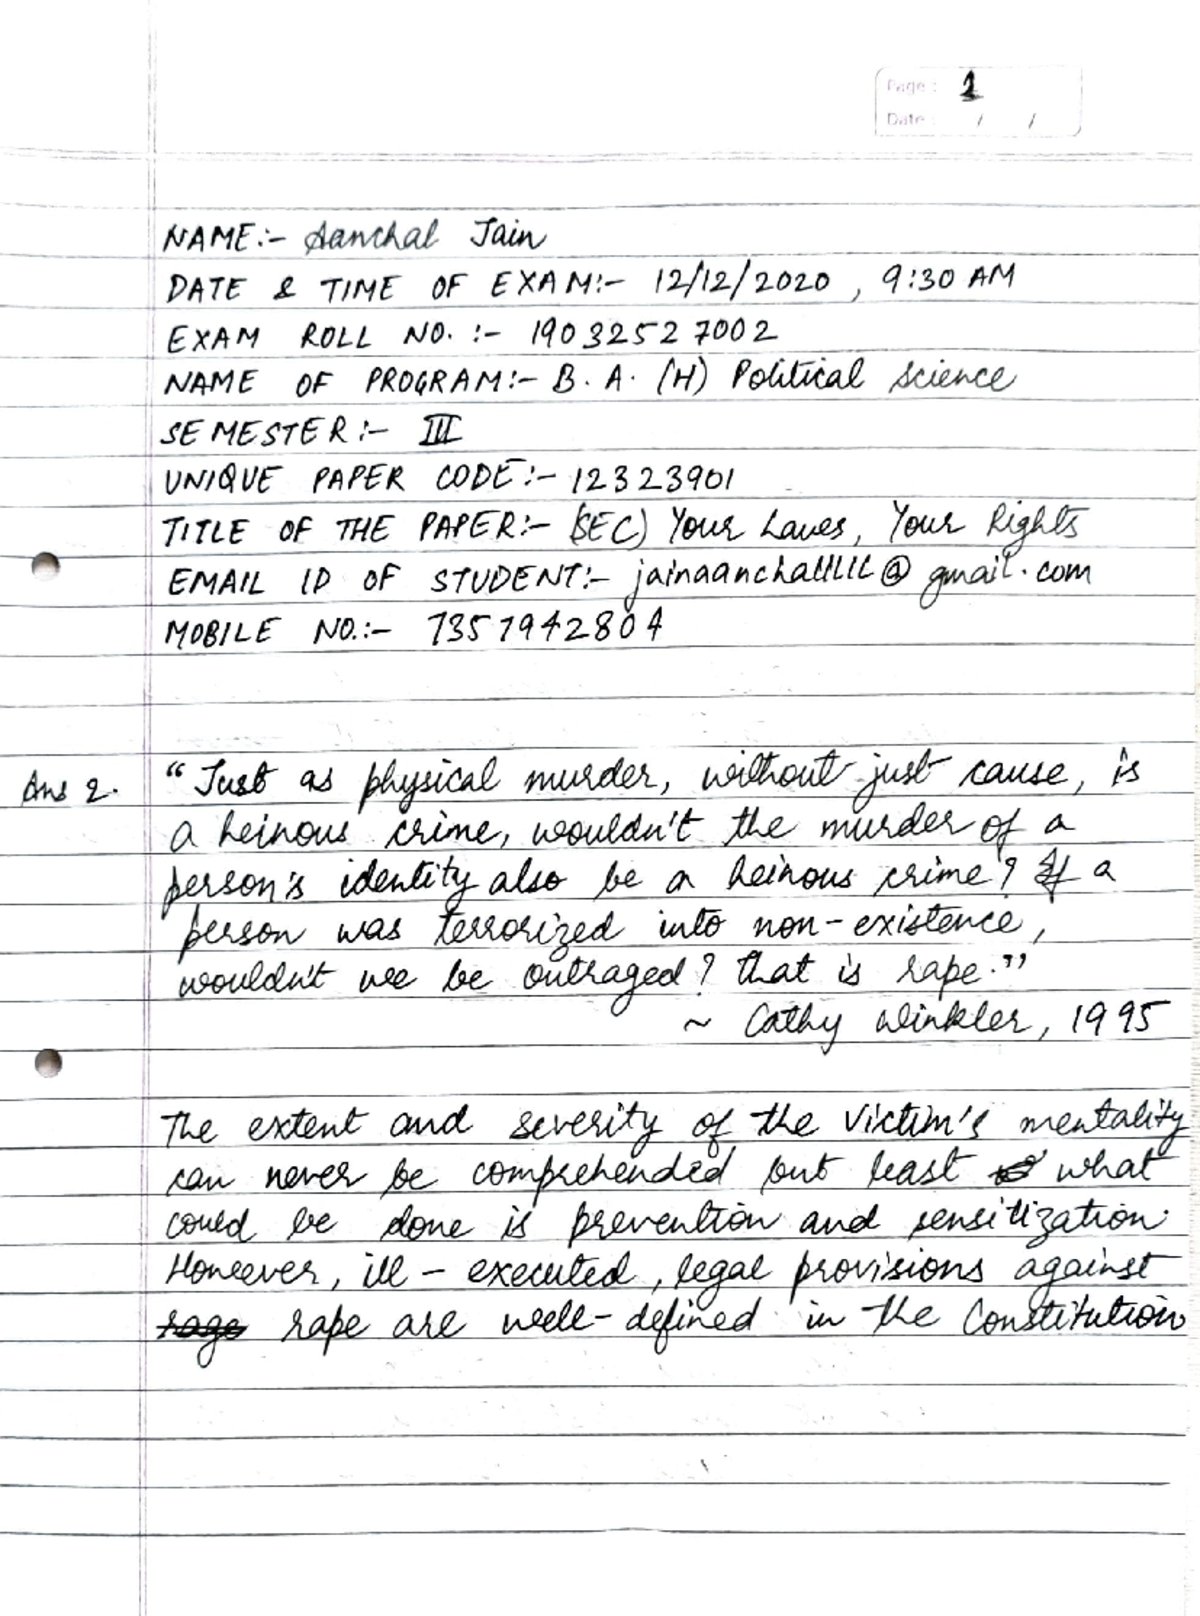 Page: 1
Date: / /
NAME:- Aanchal Jain
DATE & TIME OF EXAM:- 12/12/2020, 9:30 AM
EXAM ROLL NO. :- 19032527002
NAME OF PROGRAM:- B. A. (H) Political Science
SEMESTER:- III
UNIQUE PAPER CODE:- 12323901
TITLE OF THE PAPER:- (SEC) Your Laws, Your Rights
EMAIL ID OF STUDENT:- @gmail.com
MOBILE NO.:- 7357942804
Ans 2. "Just as physical murder, without just cause, is
a heinous crime, wouldn't the murder of a
person's identity also be a heinous crime? If a
person was terrorized into non-existence,
wouldn't we be outraged? That is rape."
~ Cathy Winkler, 1995
The extent and severity of the victim's mentality
can never be comprehended but least what
could be done is prevention and sensitization.
However, ill-executed, legal provisions against
rape are well-defined in the Constitution